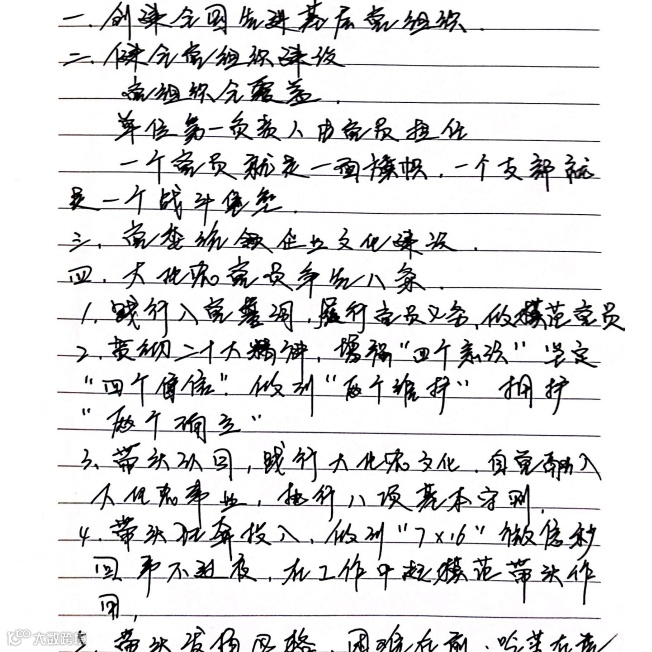 一、创建全国先进基层党组织.
二、健全党组织建设
党组织全覆盖.
单位第一负责人由党员担任
一个党员就是一面旗帜,一个支部就
是一个战斗堡垒.
三、党委统领企业文化建设.
四、大化所党员争先八条.
1、践行入党誓词,履行党员义务,做模范党员
2、贯彻二十大精神,增强"四个意识"坚定
"四个自信".做到"两个维护"拥护
"两个确立"
3、带头认同,践行大化所文化.自觉融入
大化所事业,执行八项基本守则.
4、带头投入,做到"7×16"微信秒
回,事不过夜,在工作中起模范带头作
用,
5、带头发扬风格,困难在前,吃苦在前
大数跨境